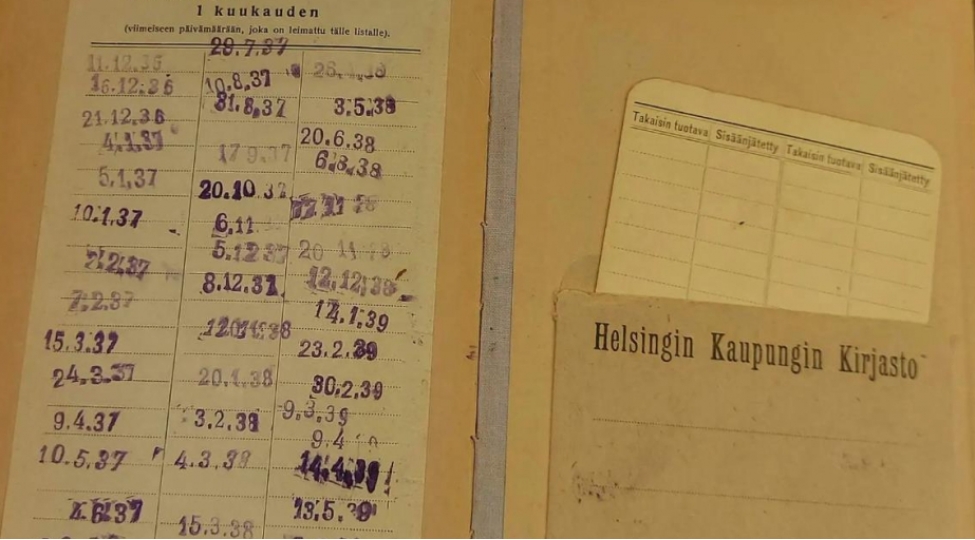 1 kuukauden
(viimeiseen päivämäärään, joka on leimattu tälle listalle).
11.12.36
16.12.36
21.12.36
4.1.37
5.1.37
10.1.37
2.2.37
7.2.37
15.3.37
24.3.37
9.4.37
10.5.37
4.6.37
29.7.37
10.8.37
31.8.37
17 9.37
20.10.37
6.11
5.12 37
8.12.37
20.1.38
3.2.38
4.3.38
15.3.38
3.5.38
20.6.38
6.8.38
12.12.38
14.1.39
23.2.39
30.2.39
9.3.39
9.4
14.4.39
13.5.39
Takaisin tuotava Sisäänjätetty Takaisin tuotava Sisäänjätetty
Helsingin Kaupungin Kirjasto